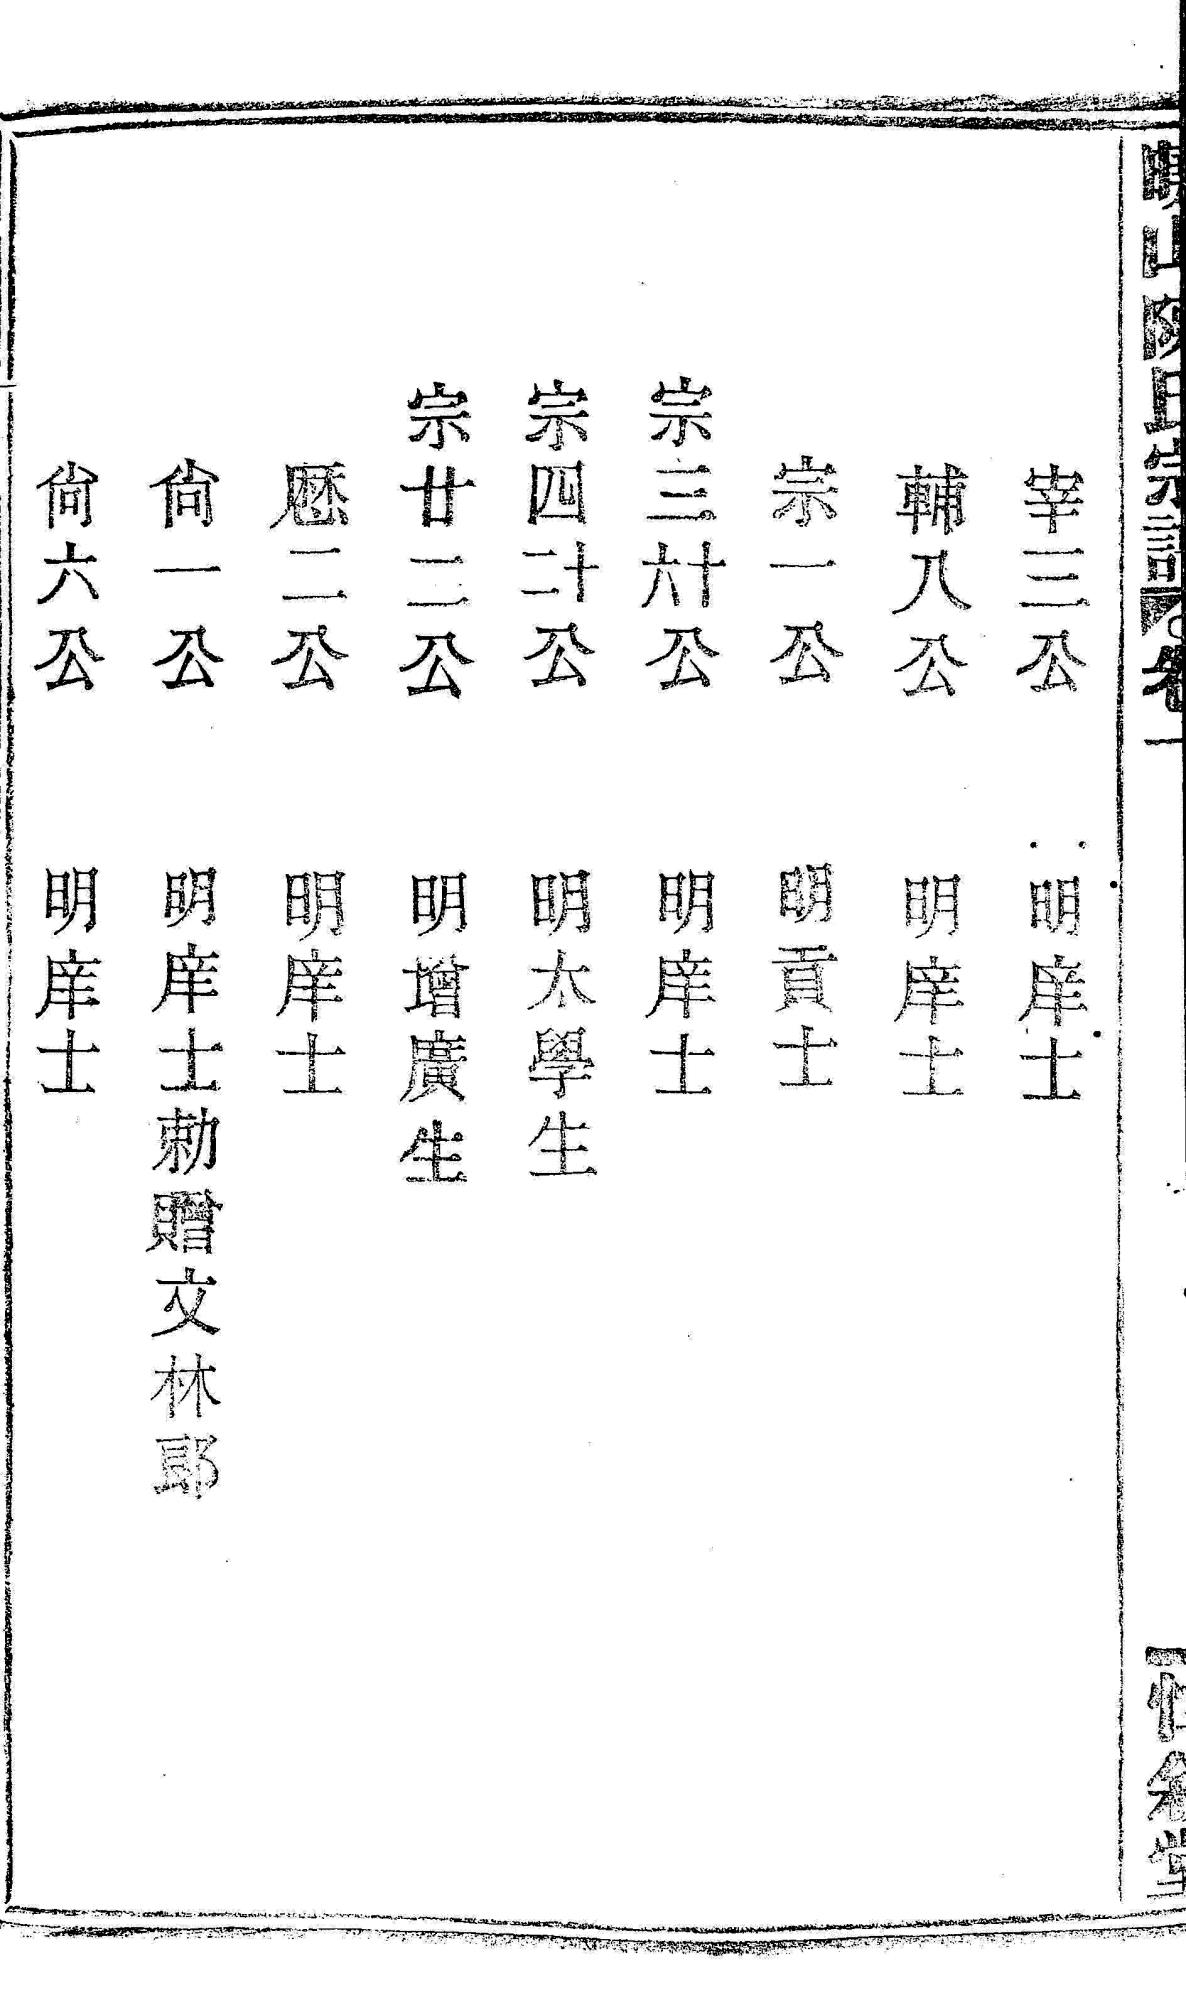 山陳氏宗譜 卷一
宰三公 明庠士
輔八公 明庠士
宗一公 明貢士
宗三十六公 明庠士
宗四十二公 明太學生
宗廿二公 明增廣生
二公 明庠士
尙一公 明庠士勅贈文林郎
尙六公 明庠士